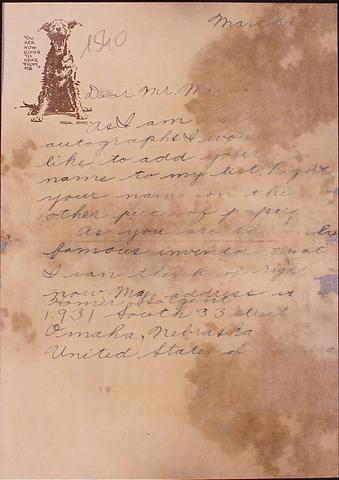 March
YOU
ARE
NOW
GOING
TO
HEAR
FROM
ME
1940
Dear Mr.
As I am
autographs I wou
like to add you
name to my list. Right
your name on the
other piece of paper.
As you are
famous inventor that
I can think of rig
now. My address is
1931 South 33 street
Omaha, Nebraska
United States of